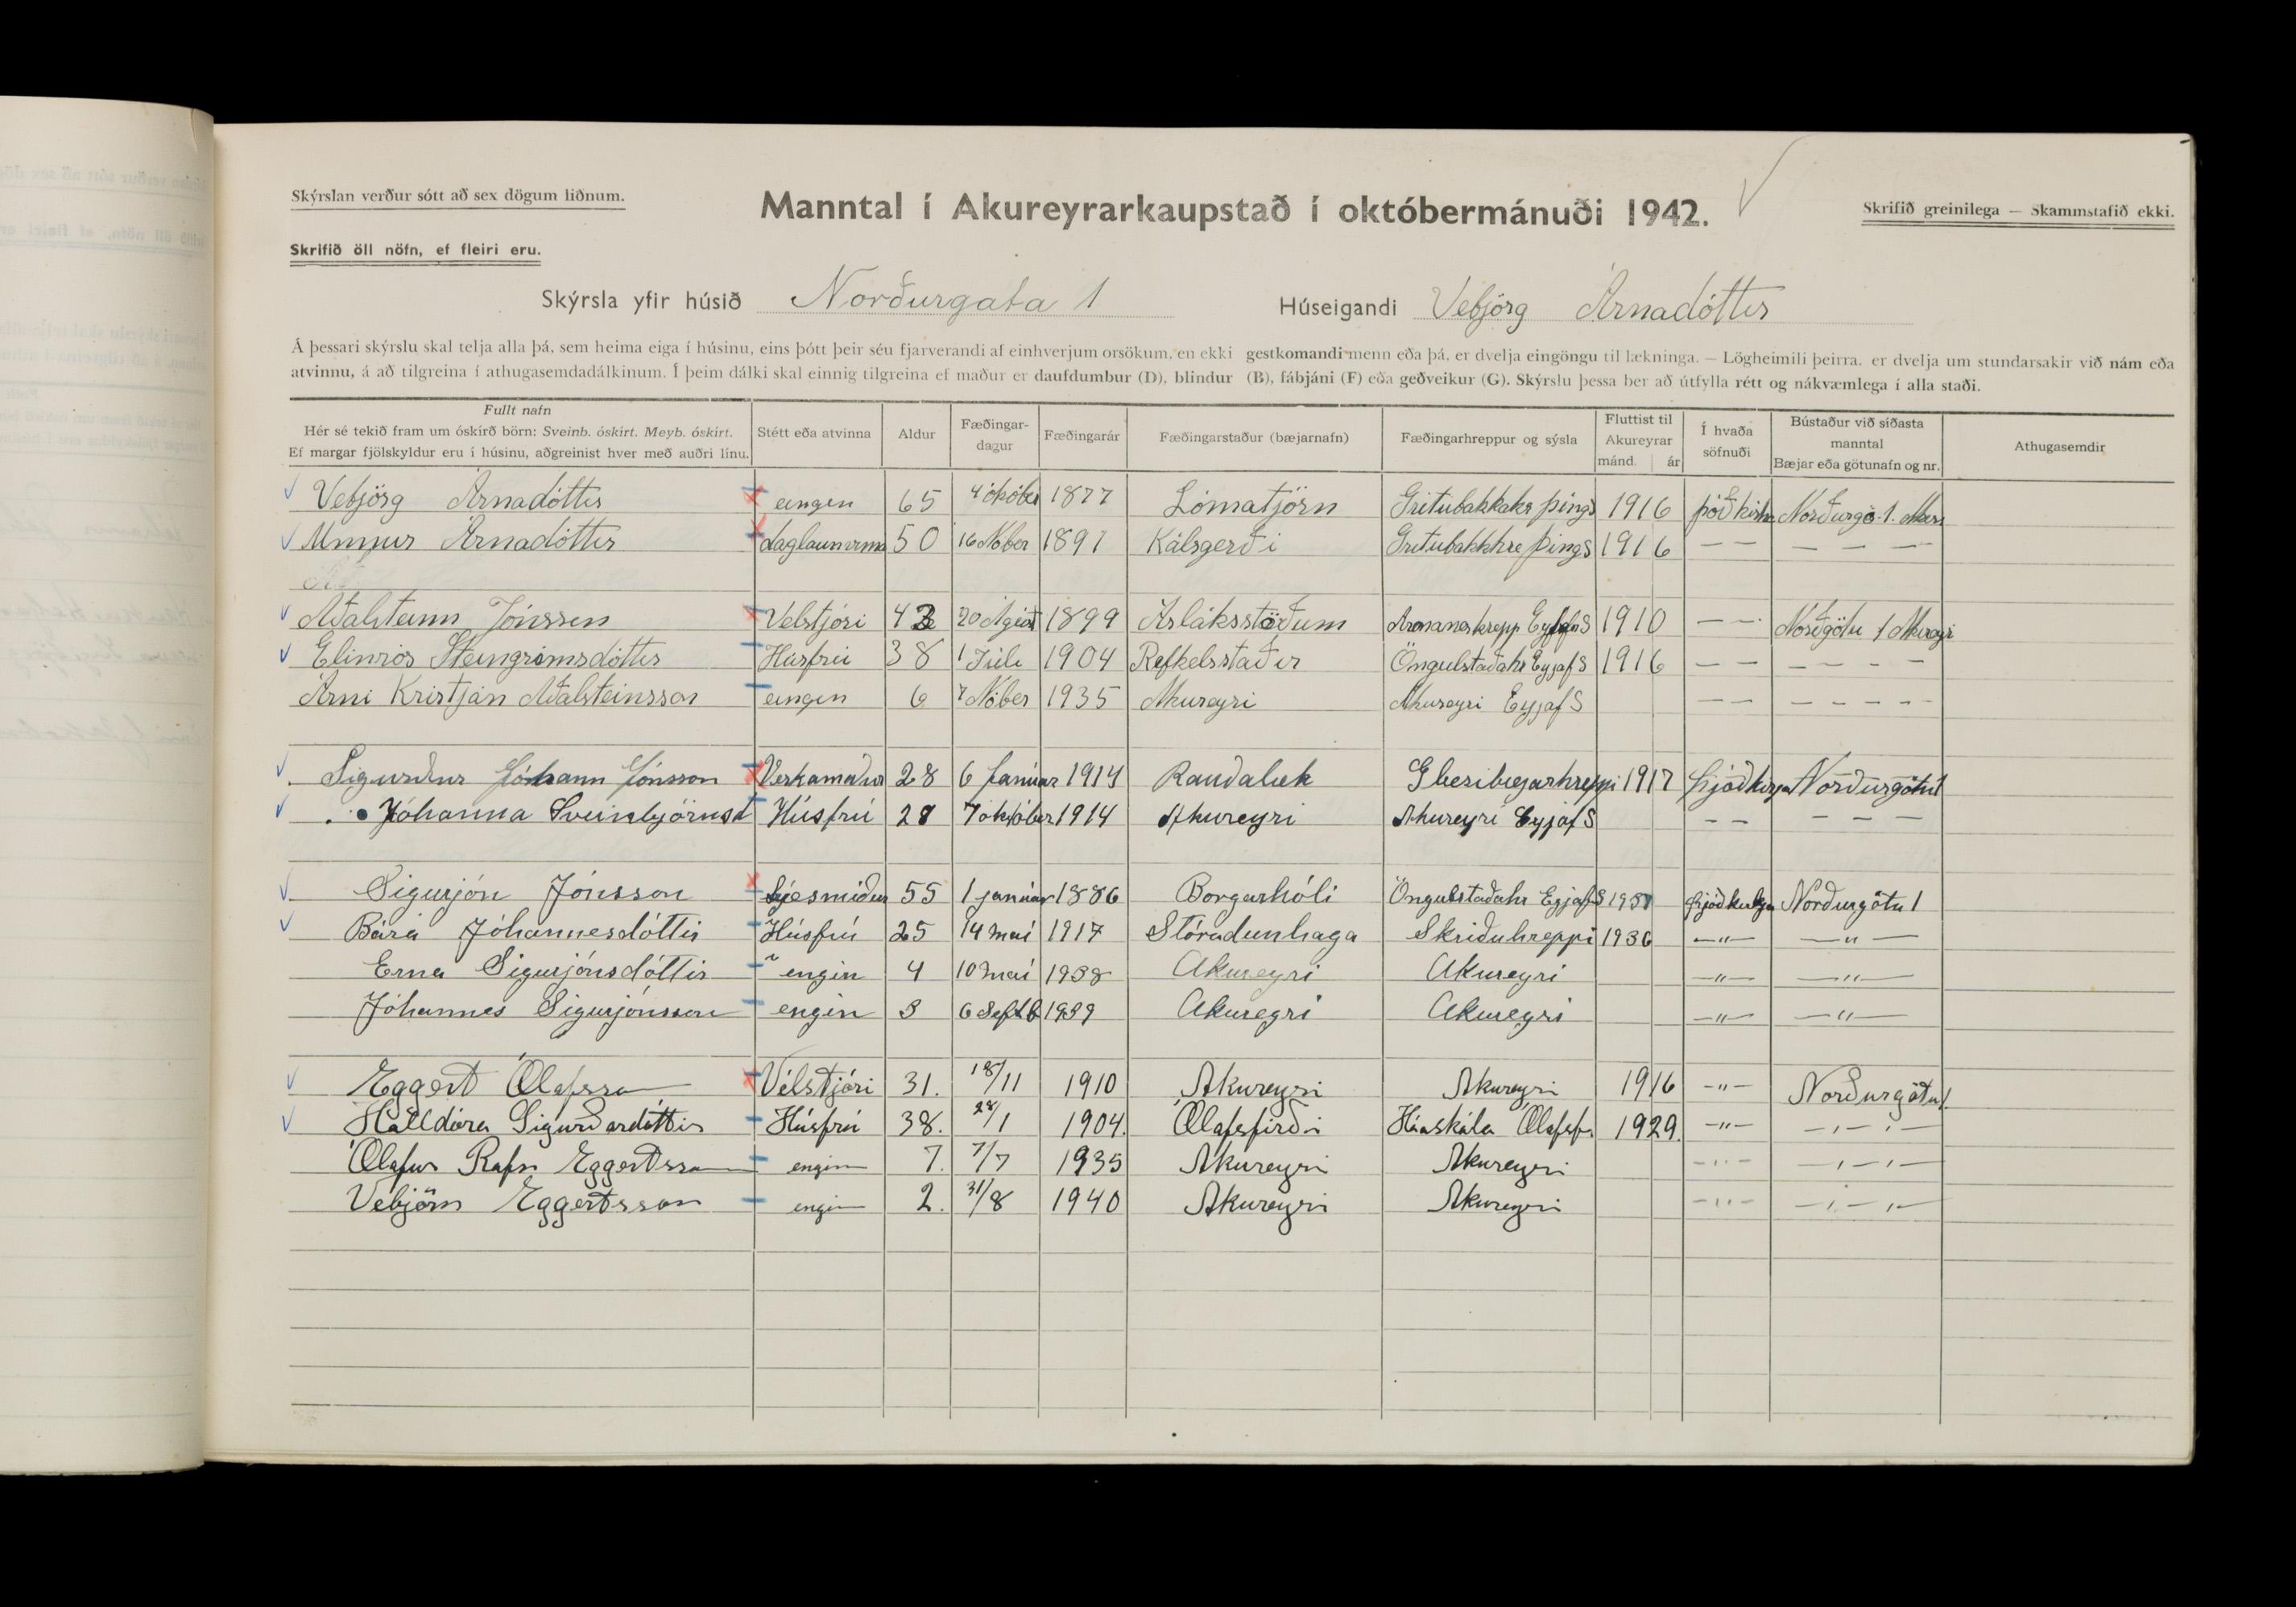 Skýrslan verður sótt að sex dögum liðnum.
Manntal í Akureyrarkaupstað í októbermánuði 1942.
Skrifið greinilega — Skammstafið ekki.
Skrifið öll nöfn, ef fleiri eru.
Skýrsla yfir húsið Norðurgata 1 Húseigandi Vebjörg Árnadóttir
Á þessari skýrslu skal telja alla þá, sem heima eiga í húsinu, eins þótt þeir séu fjarverandi af einhverjum orsökum, en ekki gestkomandi menn eða þá, er dvelja eingöngu til lækninga. — Lögheimili þeirra. er dvelja um stundarsakir við nám eða
atvinnu, á að tilgreina í athugasemdadálkinum. Í þeim dálki skal einnig tilgreina ef maður er daufdumbur (D), blindur (B), fábjáni (F) eða geðveikur (G). Skýrslu þessa ber að útfylla rétt og nákvæmlega í alla staði.
Fullt nafn
Hér sé tekið fram um óskírð börn: Sveinb. óskírt. Meyb. óskírt.
Ef margar fjölskyldur eru í húsinu, aðgreinist hver með auðri línu.
Stétt eða atvinna
Aldur
Fæðingar-
dagur
Fæðingarár
Fæðingarstaður (bæjarnafn)
Fæðingarhreppur og sýsla
Fluttist til
Akureyrar
mánd. ár
Í hvaða
söfnuði
Bústaður við síðasta
manntal
Bæjar eða götunafn og nr.
Athugasemdir
Vebjörg Árnadóttir eingen 65 4 október 1877 Lómatjörn 1916
Unnur Árnadóttir 50 16 Nóber 1891 Kálsgerði 1916 — — — — —
Aðalsteinn Jónsson Velstjóri 1899 Ásláksstöðum 1910 — —
Elinrós Steingrímsdóttir Húsfrú 38 1 Júlí 1904 Refkelsstaðir Öngulstaðahr Eyjaf S 1916 — — — — — —
Árni Kristján Aðalsteinsson eingen 6 7 Nóber 1935 Akureyri Akureyri Eyjaf S — — — — — — —
Sigurður Jóhann Jónsson Verkamaður 28 6 Janúar 1914 Rauðalæk 1917 Norðurgötu 1
Jóhanna Sveinbjörnsd Húsfrú 28 7 október 1914 Akureyri Akureyri Eyjaf S — — — — —
Sigurjón Jónsson 55 1 janúar 1886 Borgarhóli Öngulstaðahr Eyjaf S Norðurgötu 1
Bára Jóhannesdóttir Húsfrú 25 14 maí 1917 Stóradunhaga Skriðuhreppi 1936 —"— —"—
Erna Sigurjónsdóttir engin 4 10 maí 1938 Akureyri Akureyri —"— —"—
Jóhannes Sigurjónsson engin 3 6 Septb 1939 Akureyri Akureyri —"— —"—
Eggert Ólafsson Vélstjóri 31. 18/11 1910 Akureyri Akureyri 1916 —"— Norðurgötu 1.
Halldóra Sigurðardóttir Húsfrú 38. 28/1 1904. Ólafsfirði Ólafsf. 1929. —"— —"—
Ólafur Rafn Eggertsson engin 7. 7/7 1935 Akureyri Akureyri —"— —"—
Vebjörn Eggertsson engin 2. 31/8 1940 Akureyri Akureyri —"— —"—